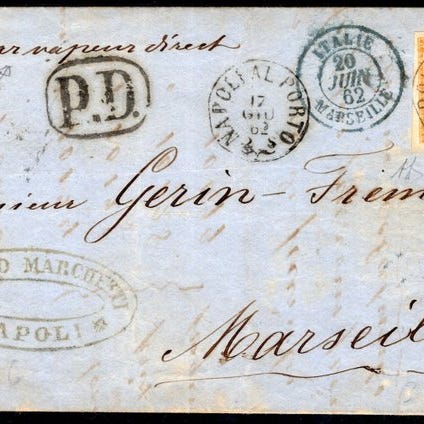 par vapeur direct
P.D.
NAPOLI AL PORTO
17
GIU
62
ITALIE
20
JUIN
62
MARSEILLE
sieur Gerin-Frem
D MARCHETTI
NAPOLI
Marseil